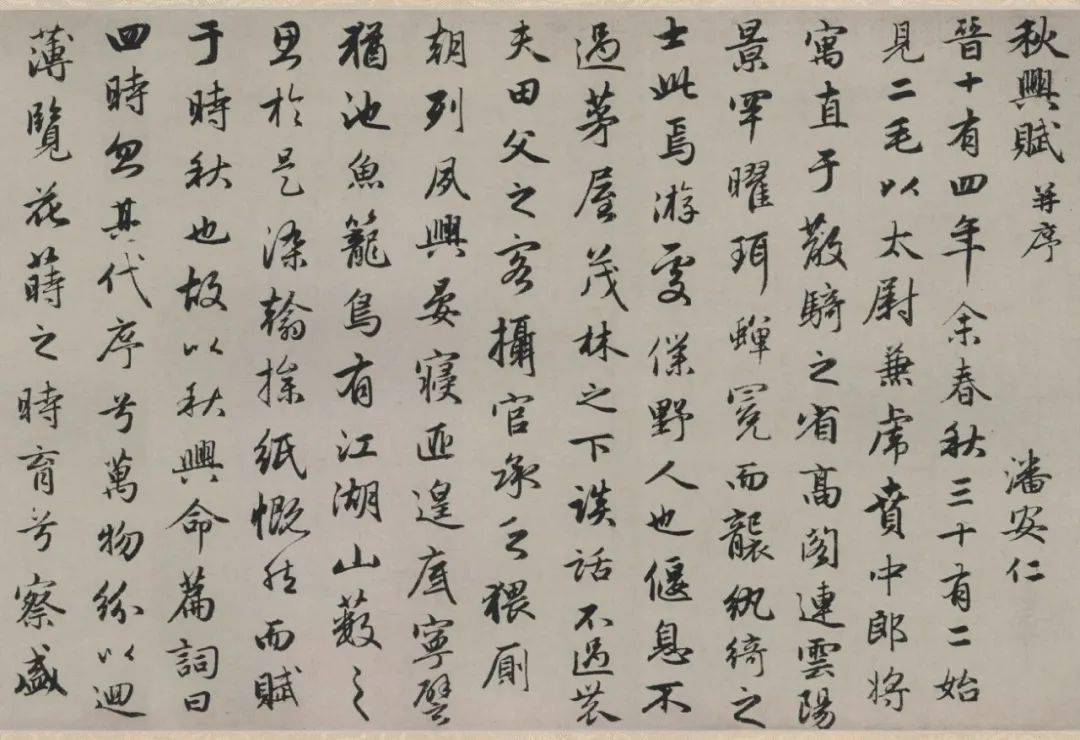 秋興賦 并序 潘安仁
晉十有四年余春秋三十有二始
見二毛以太尉兼虎賁中郎將
寓直于散騎之省高閣連雲陽
景罕曜珥蟬冕而襲紈綺之
士此焉游處僕野人也偃息不
過茅屋茂林之下談話不過農
夫田父之客攝官承乏猥厠
朝列夙興晏寢匪遑底寧譬
猶池魚籠鳥有江湖山藪之
思於是染翰操紙慨然而賦
于時秋也故以秋興命篇詞曰
四時忽其代序兮萬物紛以迴
薄覽花蒔之時育兮察盛